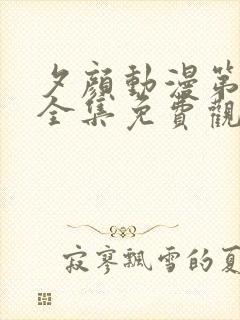 夕顔動漫第
全集免費觀
寂寥飄雪的夏